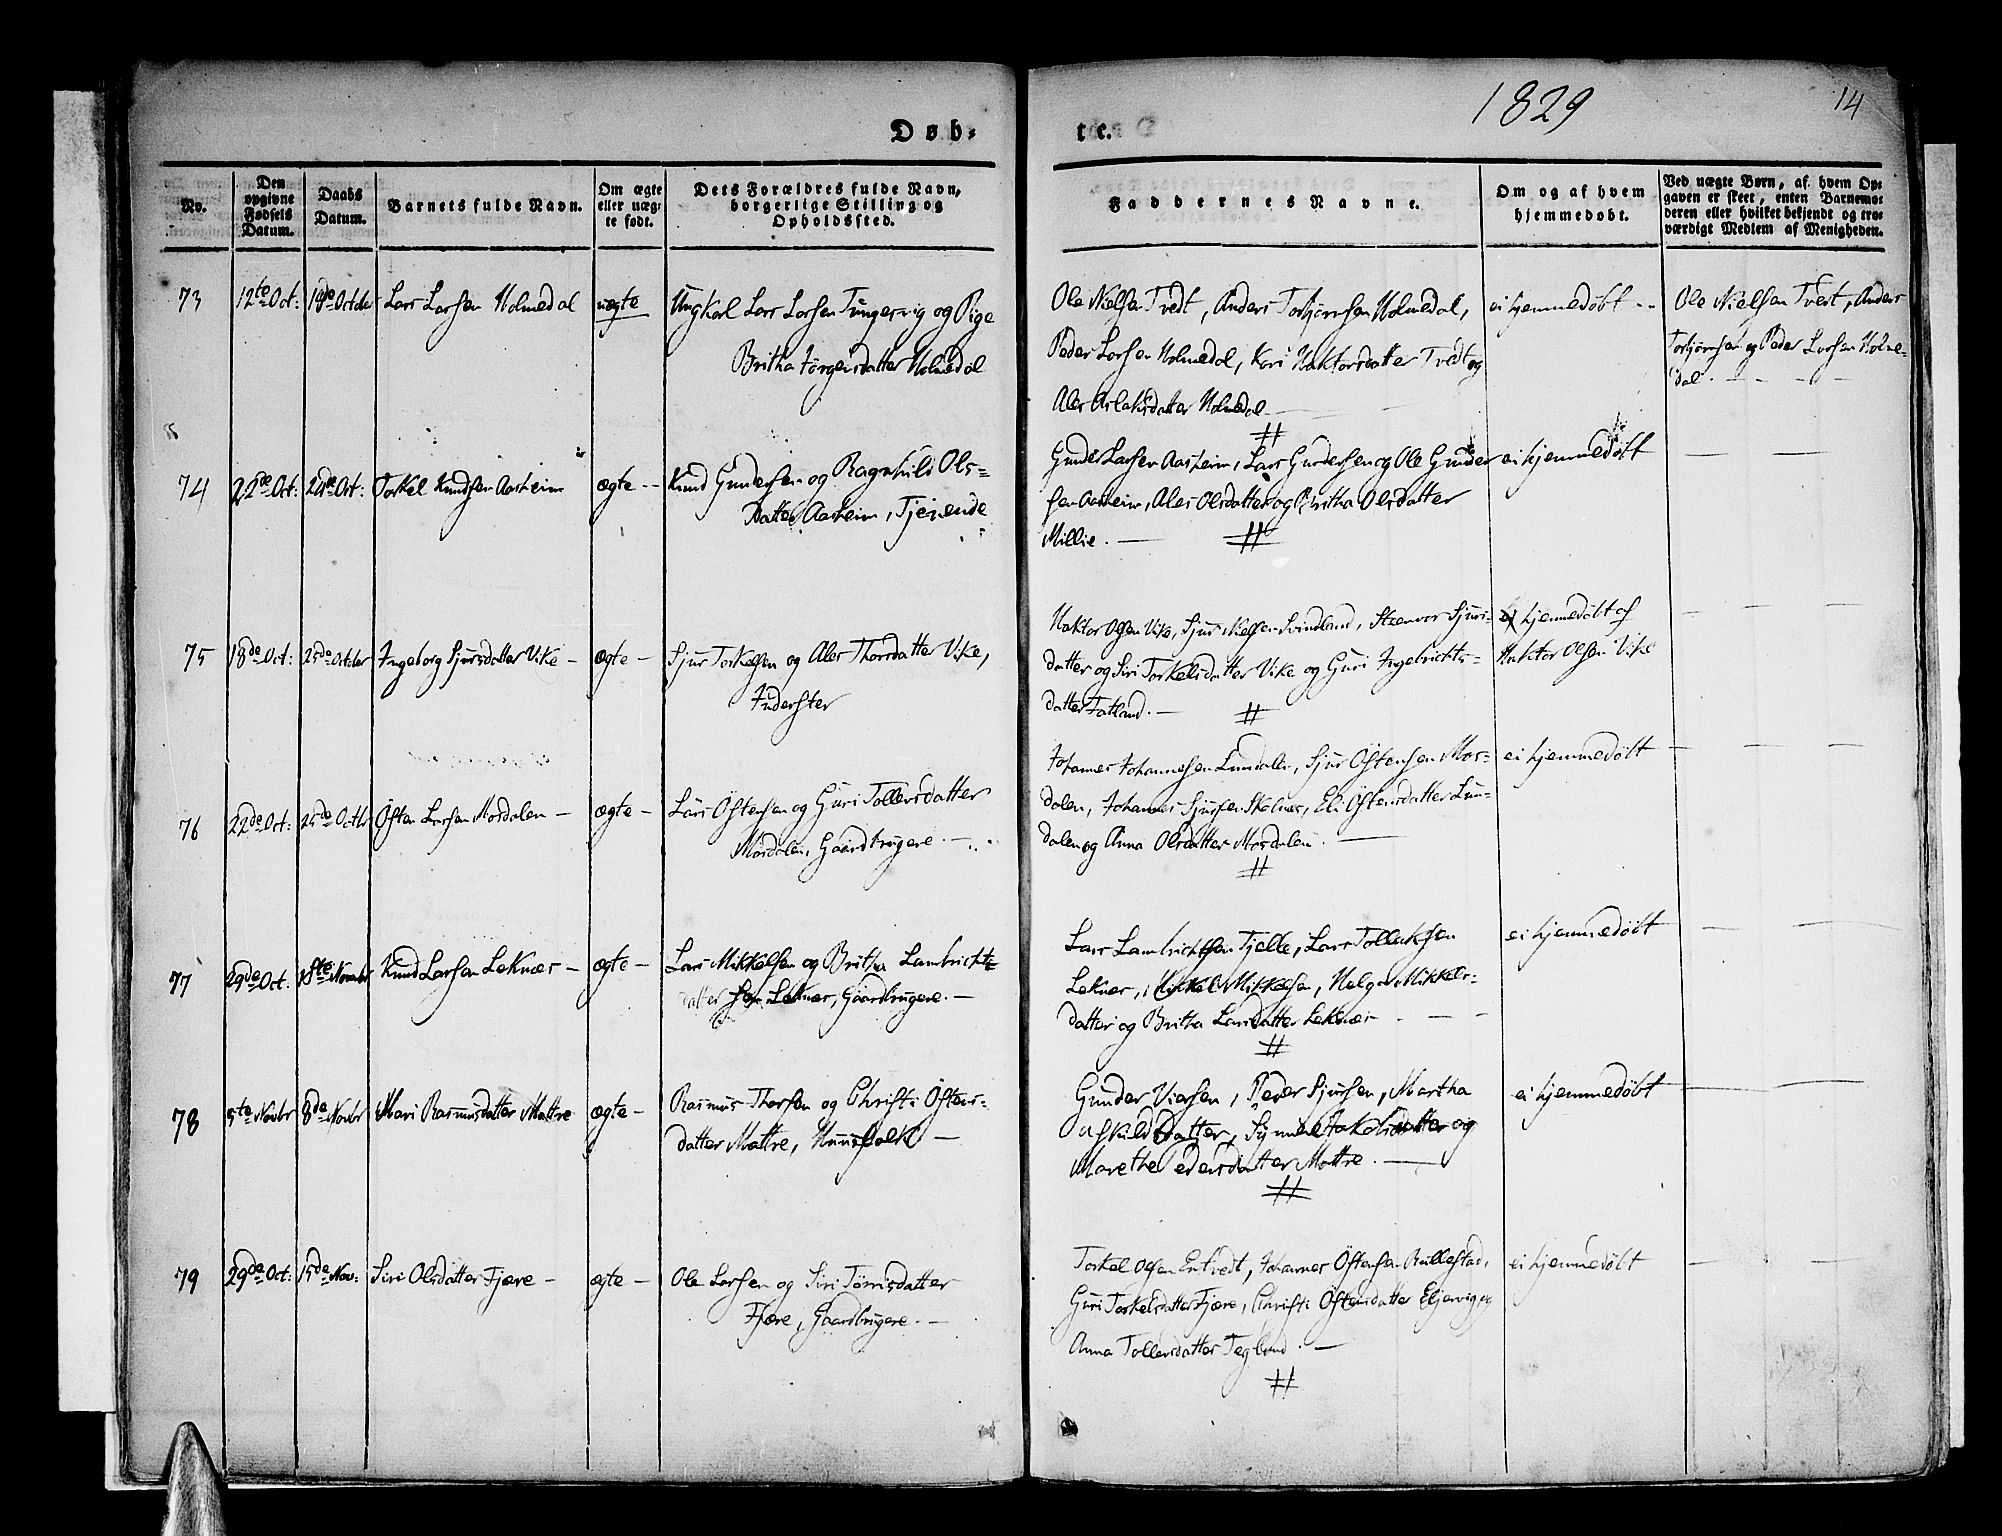 1829
14
Døb-
te.
No.
Den opgivne Fødsels Datum.
Daabs Datum.
Barnets fulde Navn.
Om ægte eller uæg- te født.
Dets Forældres fulde Navn, borgerlige Stilling og Opholdssted.
Faddernes Navne.
Om og af hvem hjemmedøbt.
Ved uægte Børn, af hvem Op- gaven er skeet, enten Barnemo- deren eller hvilket bekjendt og tro- værdigt Medlem af Menigheden.
73 12te Oct: 18de October Lars Larsen Holmedal uægte Ungkarl Lars Larsen Tungesvig og Pige
Britha Jørgensdatter Holmedal
Ole Nielsen Tvedt, Anders Torbjørnsen Holmedal,
Peder Larsen Holmedal, Kari Haktorsdatter Tvedt og
Ales Aslaksdatter Holmedal
ei hjemmedøbt
Ole Nielsen Tvedt, Anders
Torbjørnsen og Peder Larsen Holme-
dal.
74 22de Oct: Oct: Torkel Knudsen Aasheim ægte Knud Gundersen og Ragnhild Ols-
datter Aasheim, Tjenende
Gunder Larsen Aasheim, Lars Gundersen og Ole Gunder
sen Aasheim, Ales Olsdatter og Britha Olsdatter
Millie.
ei hjemmedøbt
75 18de Oct: 25de October Ingeborg Sjursdatter Vike ægte Sjur Torkelsen og Ales Thorsdatter Vike,
Inderster
Haktor Olsen Vike, Sjur Nielsen Svindland, Steenvor Sjurs-
datter og Siri Torkelsdatter Vike og Guri Ingebrichts-
datter Fatland.
hjemmedøbt af
Haktor Olsen Vike
76 22de Oct: 25de Octbr Østen Larsen Mosdalen ægte Lars Østensen og Guri Tollevsdatter
Mosdalen, Gaardbrugere.
Johannes Johannesen Lundalen, Sjur Østensen Mos-
dalen, Johannes Sjursen Skølnes, Eli Østensdatter Lun-
dalen og Anna Olsdatter Mosdalen.
ei hjemmedøbt
77 29de Oct: Novbr Knud Larsen Leknæs ægte Lars Mikkelsen og Britha Lambrichts
datter Leknæs, Gaardbrugere.
Lars Lambrichtsen Tjelle, Lars Tollaksen
Leknæs, Mikkel Mikkelsen, Helga Mikkels-
datter og Britha Larsdatter Leknæs
ei hjemmedøbt
78 5te Novbr 8de Novbr Mari Rasmusdatter Mattre ægte Rasmus Thorsen og Christi Østens-
datter Mattre, Huusfolk
Gunder Viersen, Peder Sjursen, Martha
Askildsdatter, Synneve Jakobsdatter og
Marethe Pedersdatter Mattre.
ei hjemmedøbt
79 29de Oct: 15de Nov: Siri Olsdatter Fjære ægte Ole Larsen og Siri Tørrisdatter
Fjære, Gaardbrugere.
Torkel Olsen Entvedt, Johannes Østensen Rullestad,
Guri Torkelsdatter Fjære, Christi Østensdatter Eljervig og
Anna Tollevsdatter Tegland.
ei hjemmedøbt